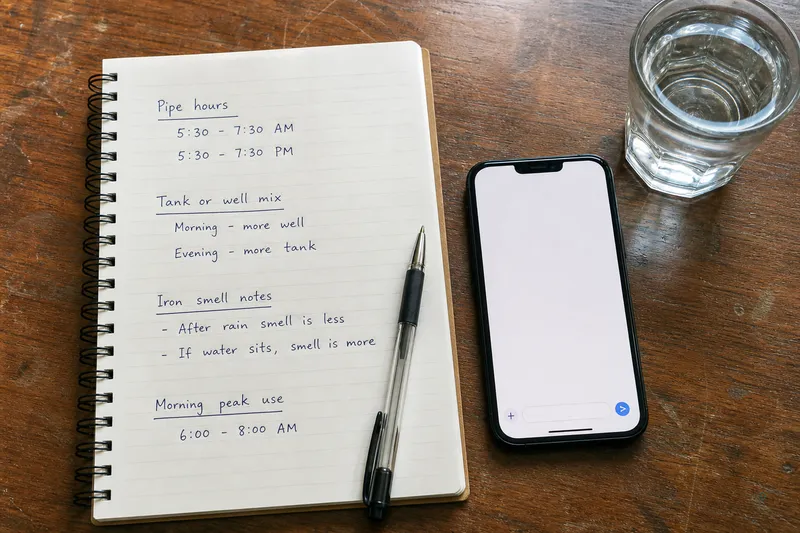 Pipe hours
5:30 - 7:30 AM
5:30 - 7:30 PM
Tank or well mix
Morning - more well
Evening - more tank
Iron smell notes
- After rain smell is less
- If water sits, smell is more
Morning peak use
6:00 - 8:00 AM